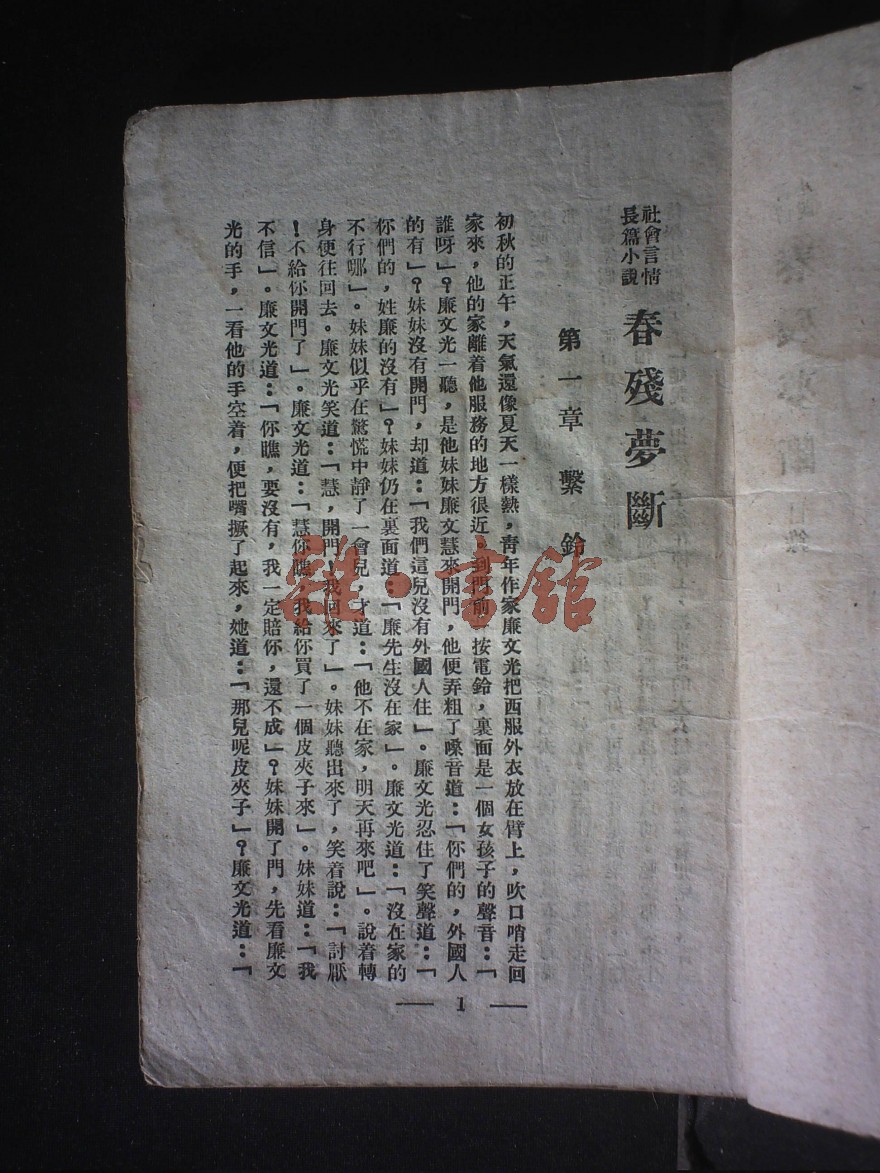 社會言情
長篇小說
春殘夢斷
第一章 繫鈴
初秋的正午，天氣還像夏天一樣熱，靑年作家廉文光把西服外衣放在臂上，吹口哨走回
家來，他的家離着他服務的地方很近。到門前一按電鈴，裏面是一個女孩子的聲音：「
誰呀」？廉文光一聽，是他妹妹廉文慧來開門，他便弄粗了嗓音道：「你們的，外國人
的有」？妹妹沒有開門，却道：「我們這兒沒有外國人住」。廉文光忍住了笑聲道：「
你們的，姓廉的沒有」？妹妹仍在裏面道：「廉先生沒在家」。廉文光道：「沒在家的
不行哪」。妹妹似乎在驚慌中靜了一會兒，才道：「他不在家，明天再來吧」。說着轉
身便往回去。廉文光笑道：「慧，開門！我回來了」。妹妹聽出來了，笑着說：「討厭
！不給你開門了」。廉文光道：「慧你瞧，我給你買了一個皮夾子來」。妹妹道：「我
不信」。廉文光道：「你瞧，要沒有，我一定賠你，還不成」？妹妹開了門，先看廉文
光的手，一看他的手空着，便把嘴撅了起來，她道：「那兒呢皮夾子」？廉文光道：「
— 1 —
雜·書館